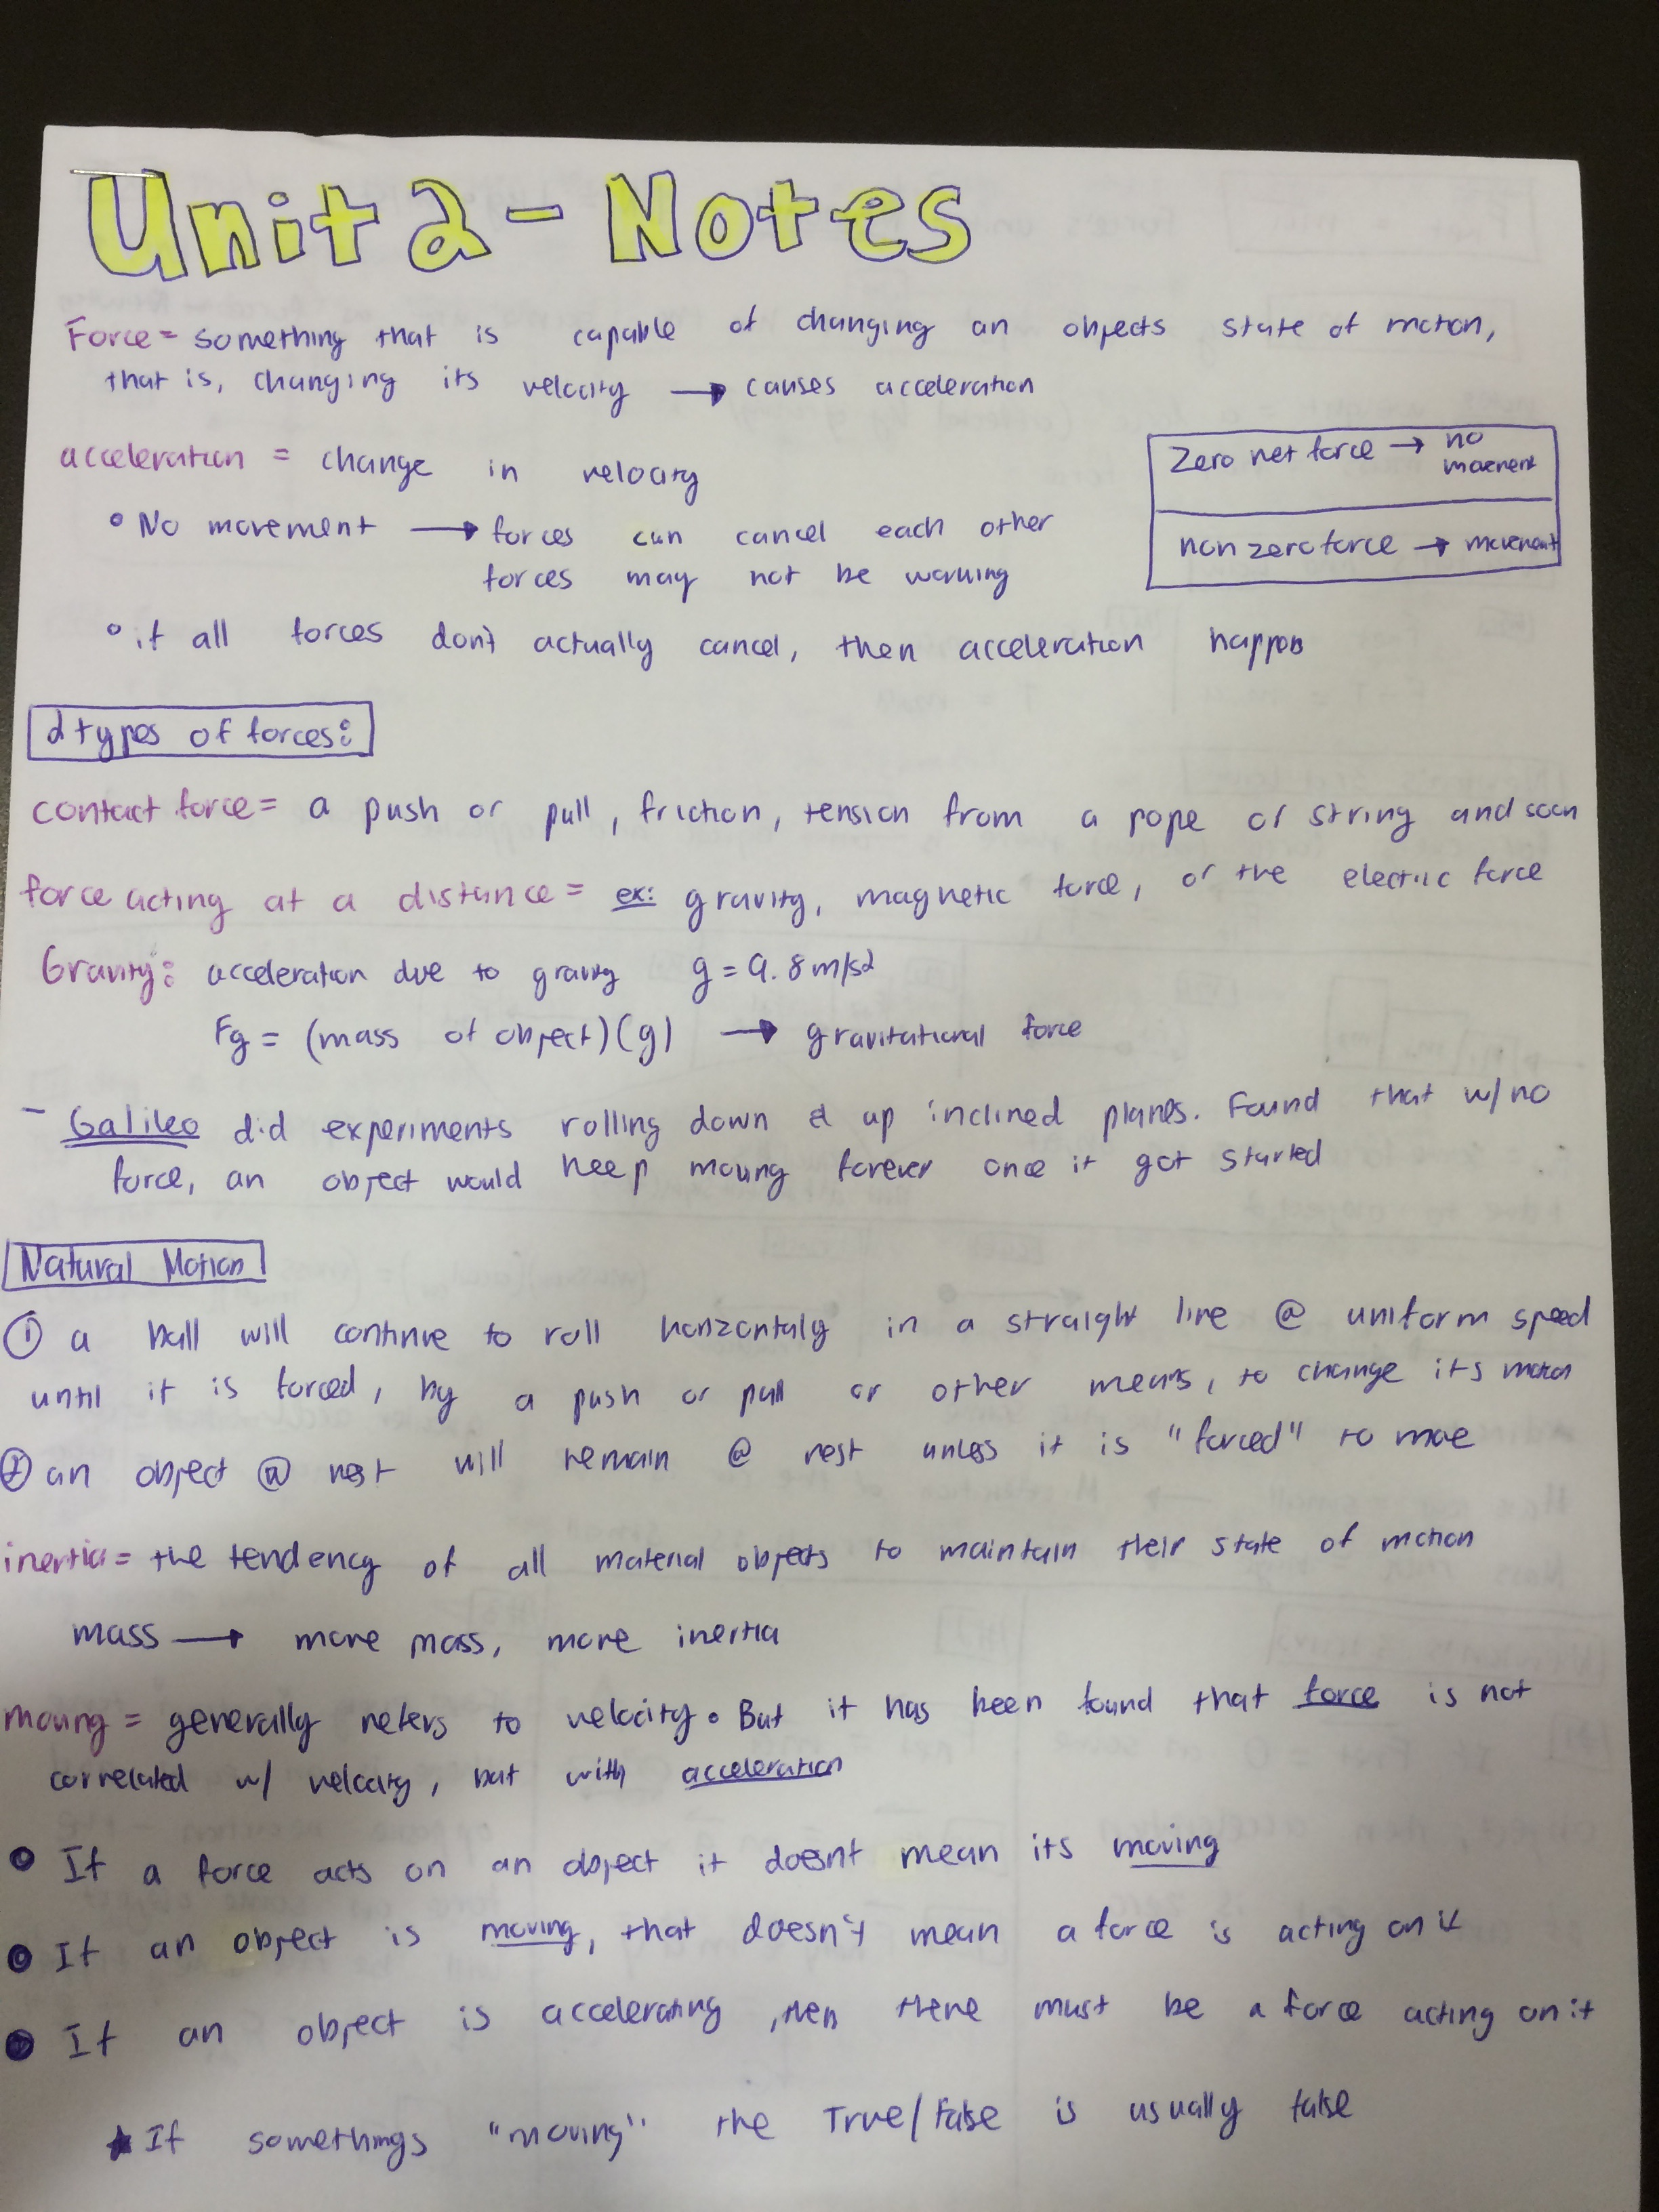 Unit 2 - Notes
Force = something that is capable of changing an objects state of motion,
that is, changing its velocity → causes acceleration
acceleration = change in velocity
Zero net force → no
movement
non zero force → movement
° No movement → forces can cancel each other
forces may not be working
° if all forces don't actually cancel, then acceleration happens
2 types of forces:
contact force = a push or pull, friction, tension from a rope or string and so on
force acting at a distance = ex: gravity, magnetic force, or the electric force
Gravity: acceleration due to gravity g = 9.8 m/s2
Fg = (mass of object)(g) → gravitational force
- Galileo did experiments rolling down & up inclined planes. Found that w/ no
force, an object would keep moving forever once it got started
Natural Motion
① a ball will continue to roll horizontaly in a straight line @ uniform speed
until it is forced, by a push or pull or other means, to change its motion
② an object @ rest will remain @ rest unless it is "forced" to move
inertia = the tendency of all material objects to maintain their state of motion
mass → more mass, more inertia
moving = generally refers to velocity. But it has been found that force is not
correlated w/ velocity, but with acceleration
• If a force acts on an object it doesnt mean its moving
• If an object is moving, that doesn't mean a force is acting on it
• If an object is accelerating, then there must be a force acting on it
★ If somethings "moving" the True/False is usually false